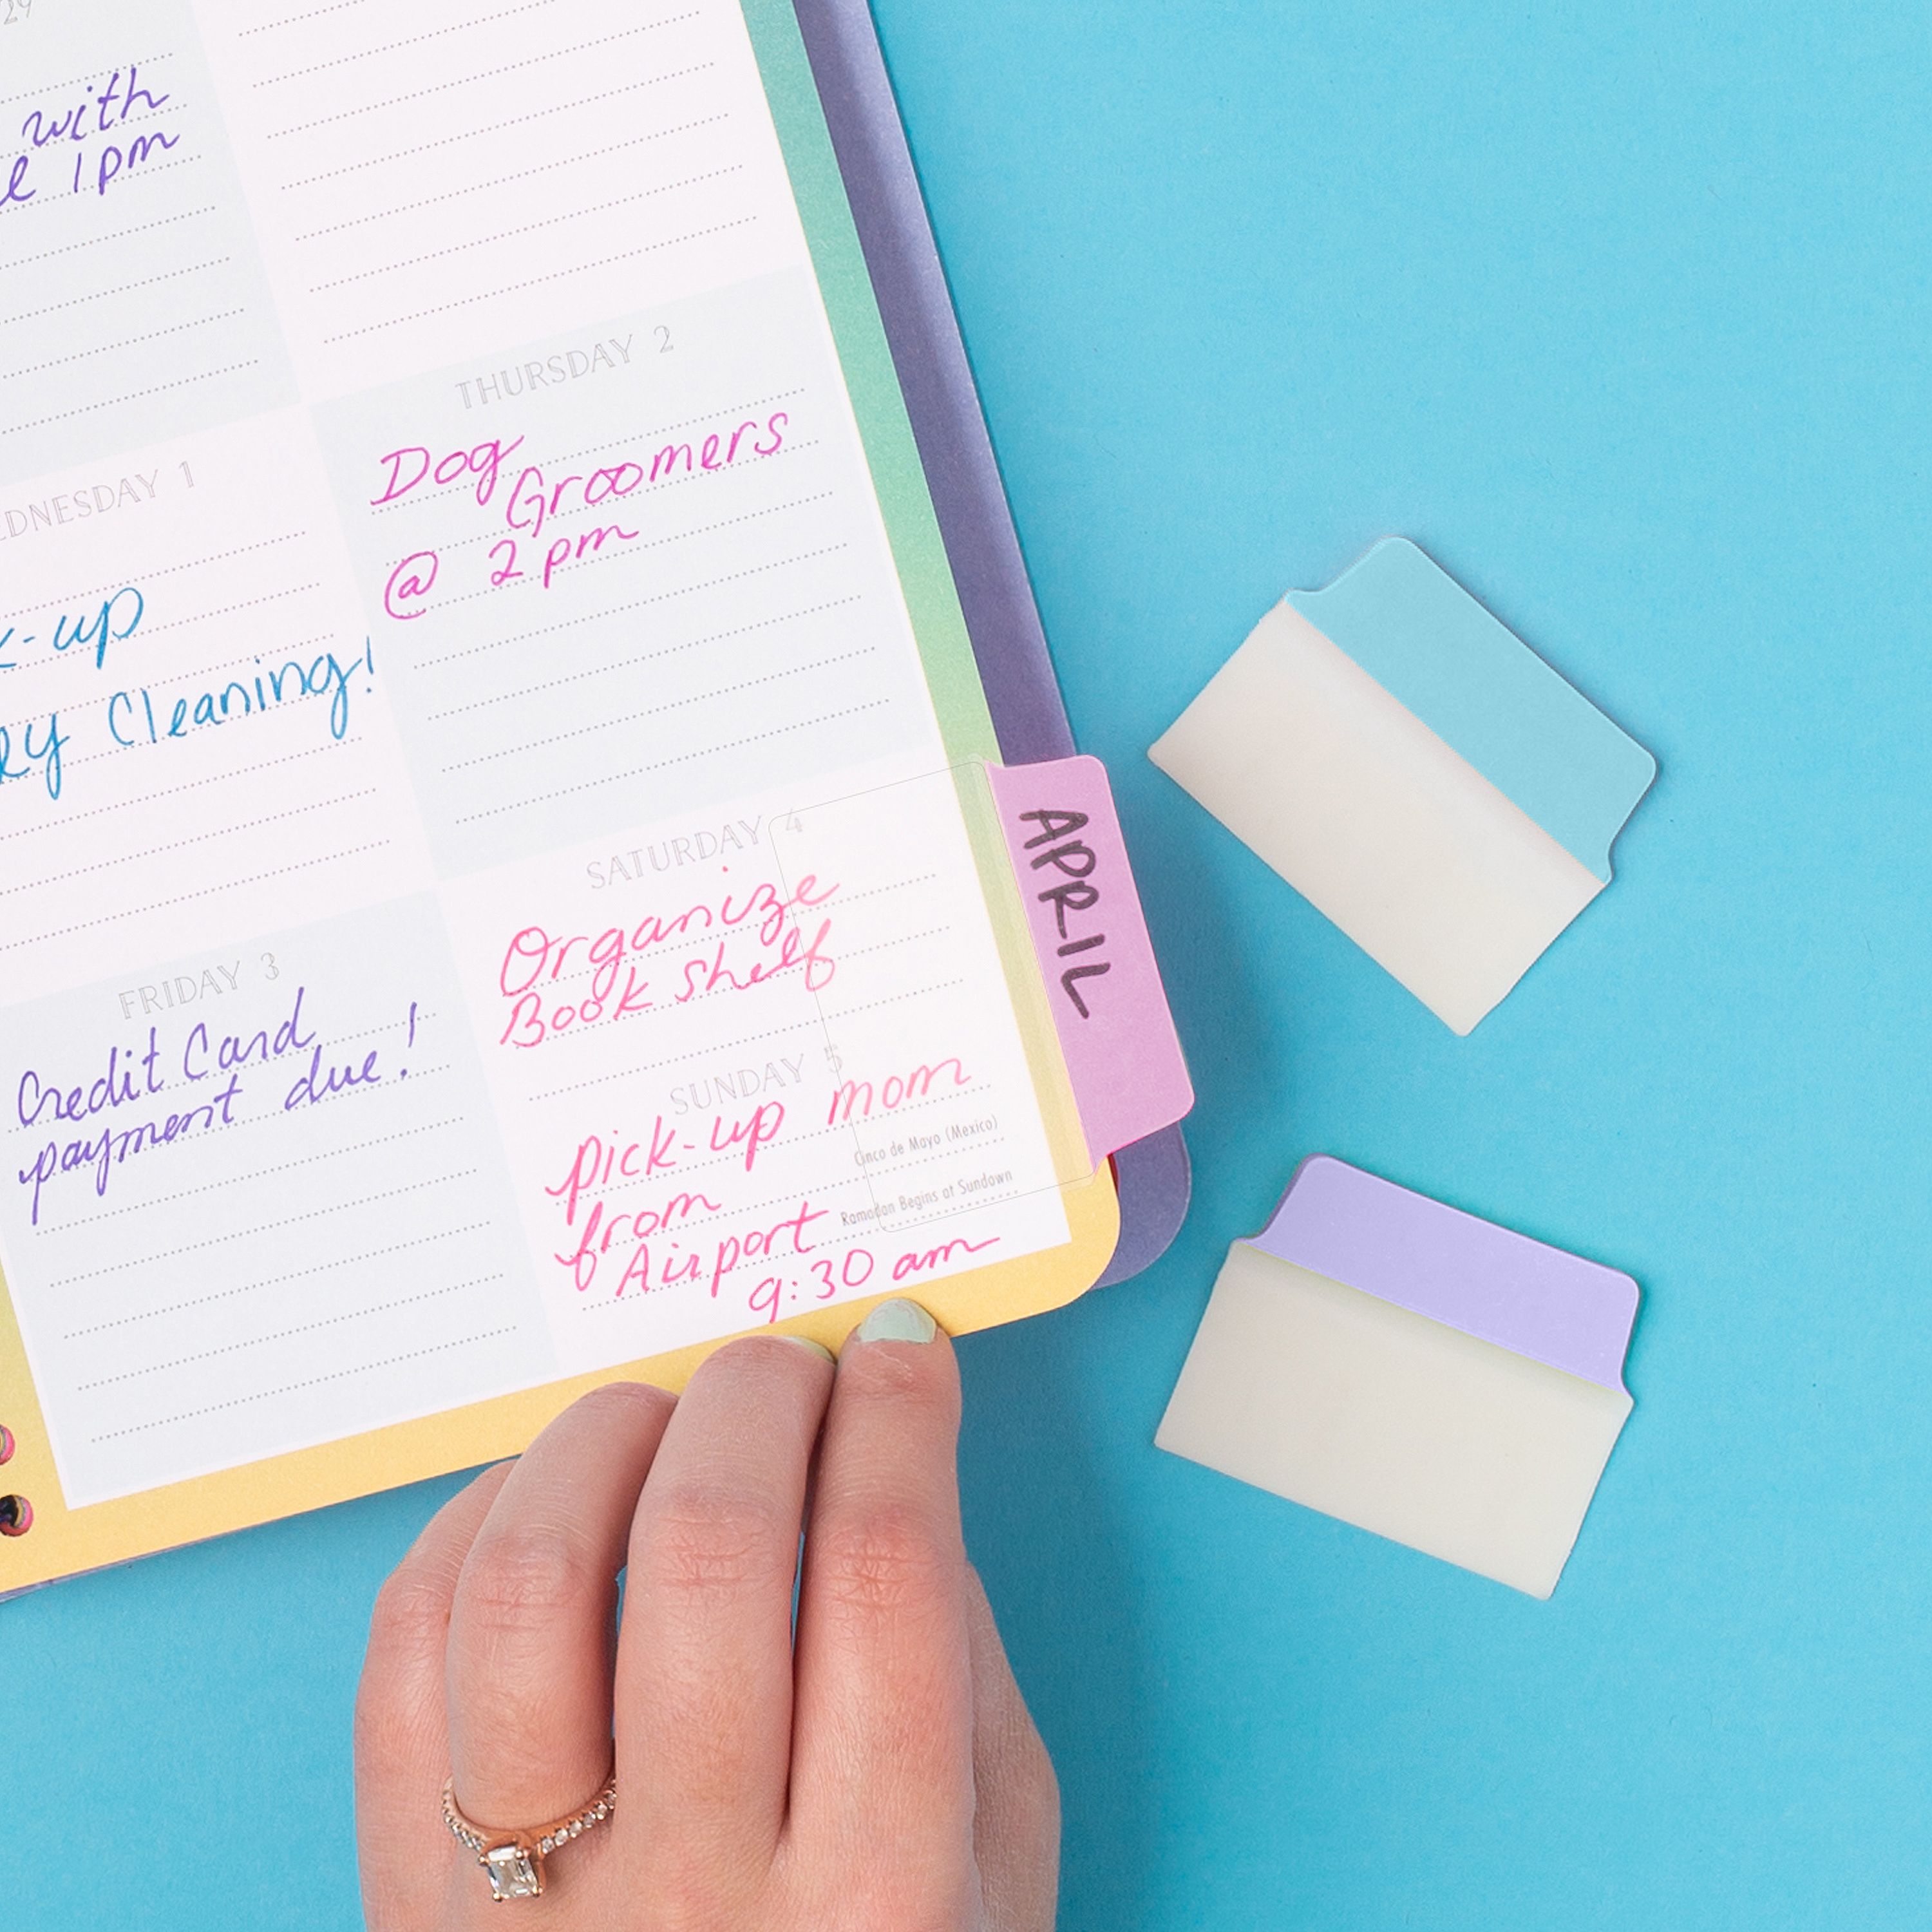 29
with
1pm
THURSDAY 2
Dog
Groomers
@ 2pm
WEDNESDAY 1
-up
Cleaning!
FRIDAY 3
Credit Card
payment due!
SATURDAY 4
Organize
Book shelf
SUNDAY 5
Pick-up mom
from
Airport
9:30 am
Cinco de Mayo (Mexico)
Ramadan Begins at Sundown
APRIL